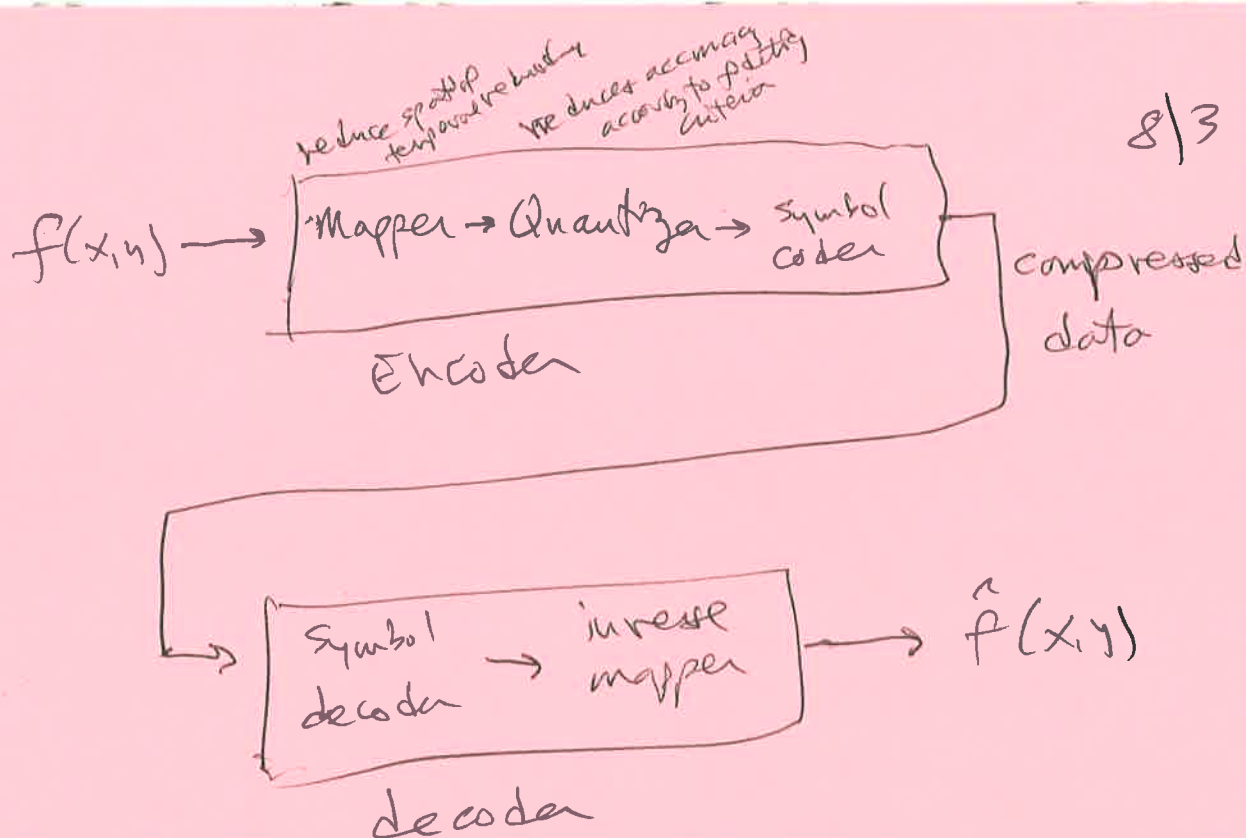 reduce spatial
temporal redundancy
reduces accuracy
according to fidelity
criteria
8/3
f(x,y) → Mapper → Quantizer → symbol
coder
compressed
data
Encoder
Symbol
decoder → inverse
mapper → f̂(x,y)
decoder